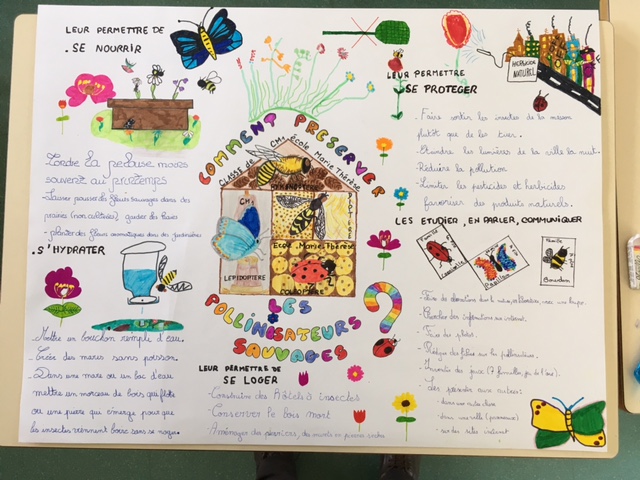 LEUR PERMETTRE DE
. SE NOURRIR
Tondre la pelouse moins
souvent au printemps
- Laisser pousser les fleurs sauvages dans des
prairies (non cultivées), garder les haies
- planter des fleurs aromatiques dans des jardinières
. S'HYDRATER
- Mettre un bouchon rempli d'eau.
- Créer des mares sans poisson.
- Dans une mare ou un lac d'eau
mettre un morceau de bois qui flotte
ou une pierre qui émerge pour que
les insectes viennent boire sans se noyer.
COMMENT PRESERVER
Classe de CM1 École Marie Thérèse
CM1
HYMENOPTERE
DIPTERE
Ecole Marie Thérèse
LEPIDOPTERE
COLEOPTERE
LES
POLLINISATEURS
SAUVAGES ?
LEUR PERMETTRE DE
SE LOGER
- Construire des Hôtels à insectes
- Conserver le bois mort
- Aménager des
en pierres sèches
LEUR PERMETTRE
SE PROTEGER
HERBICIDE
NATUREL
- Faire sortir les insectes de la maison
plutôt que de les tuer.
- Eteindre les lumières de la ville la nuit.
- Réduire la pollution
- Limiter les pesticides et herbicides
favoriser des produits naturels.
LES ETUDIER, EN PARLER, COMMUNIQUER
Famille
Coccinelle
Papillon
Famille
Bourdon
- Chercher des informations sur internet.
- Faire des photos.
- Rédiger des fiches sur les pollinisateurs.
- Inventer des jeux (7 familles, jeu de l'oie).
- Les présenter aux autres:
- dans une autre classe
- dans une ville (panneaux)
- sur des sites internet